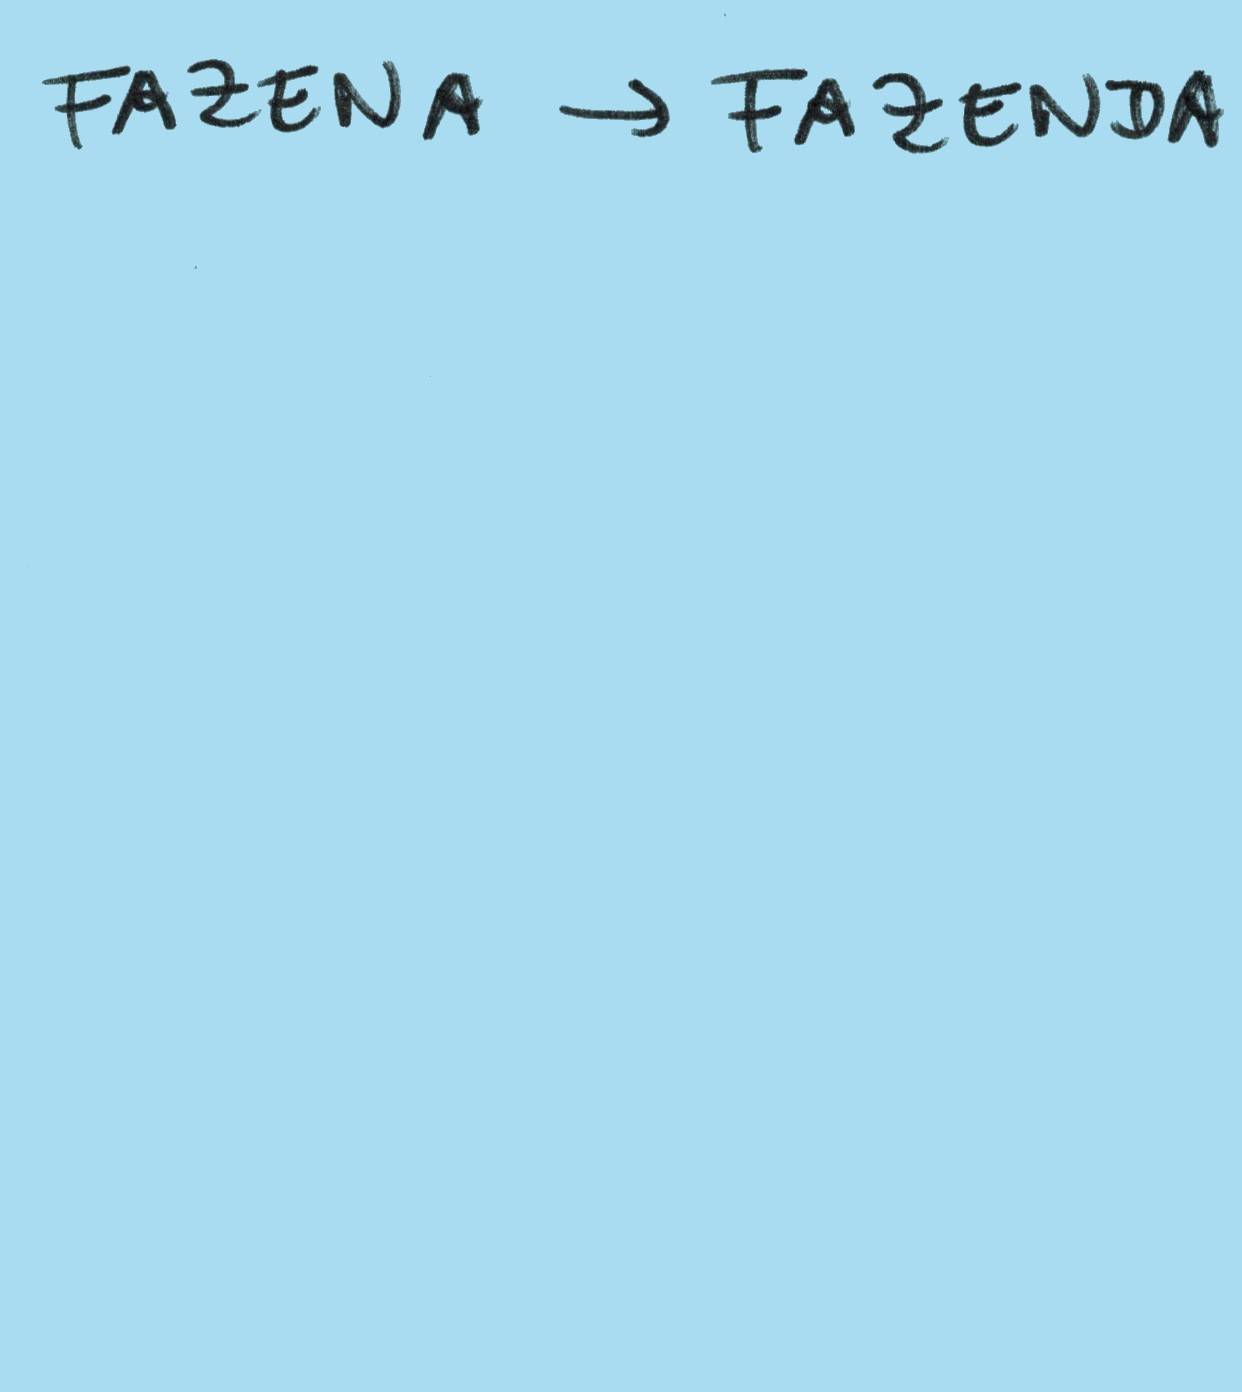 FAZENA → FAZENDA